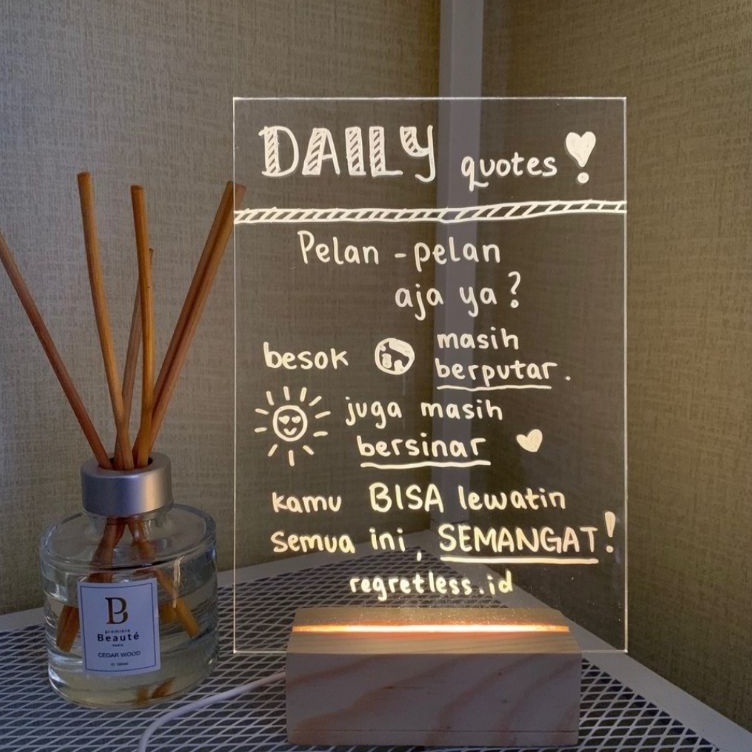 DAILY quotes!
Pelan - pelan
aja ya?
besok masih
berputar.
juga masih
bersinar
kamu BISA lewatin
semua ini, SEMANGAT!
regretless.id
B
première
Beauté
PARIS
CEDAR WOOD